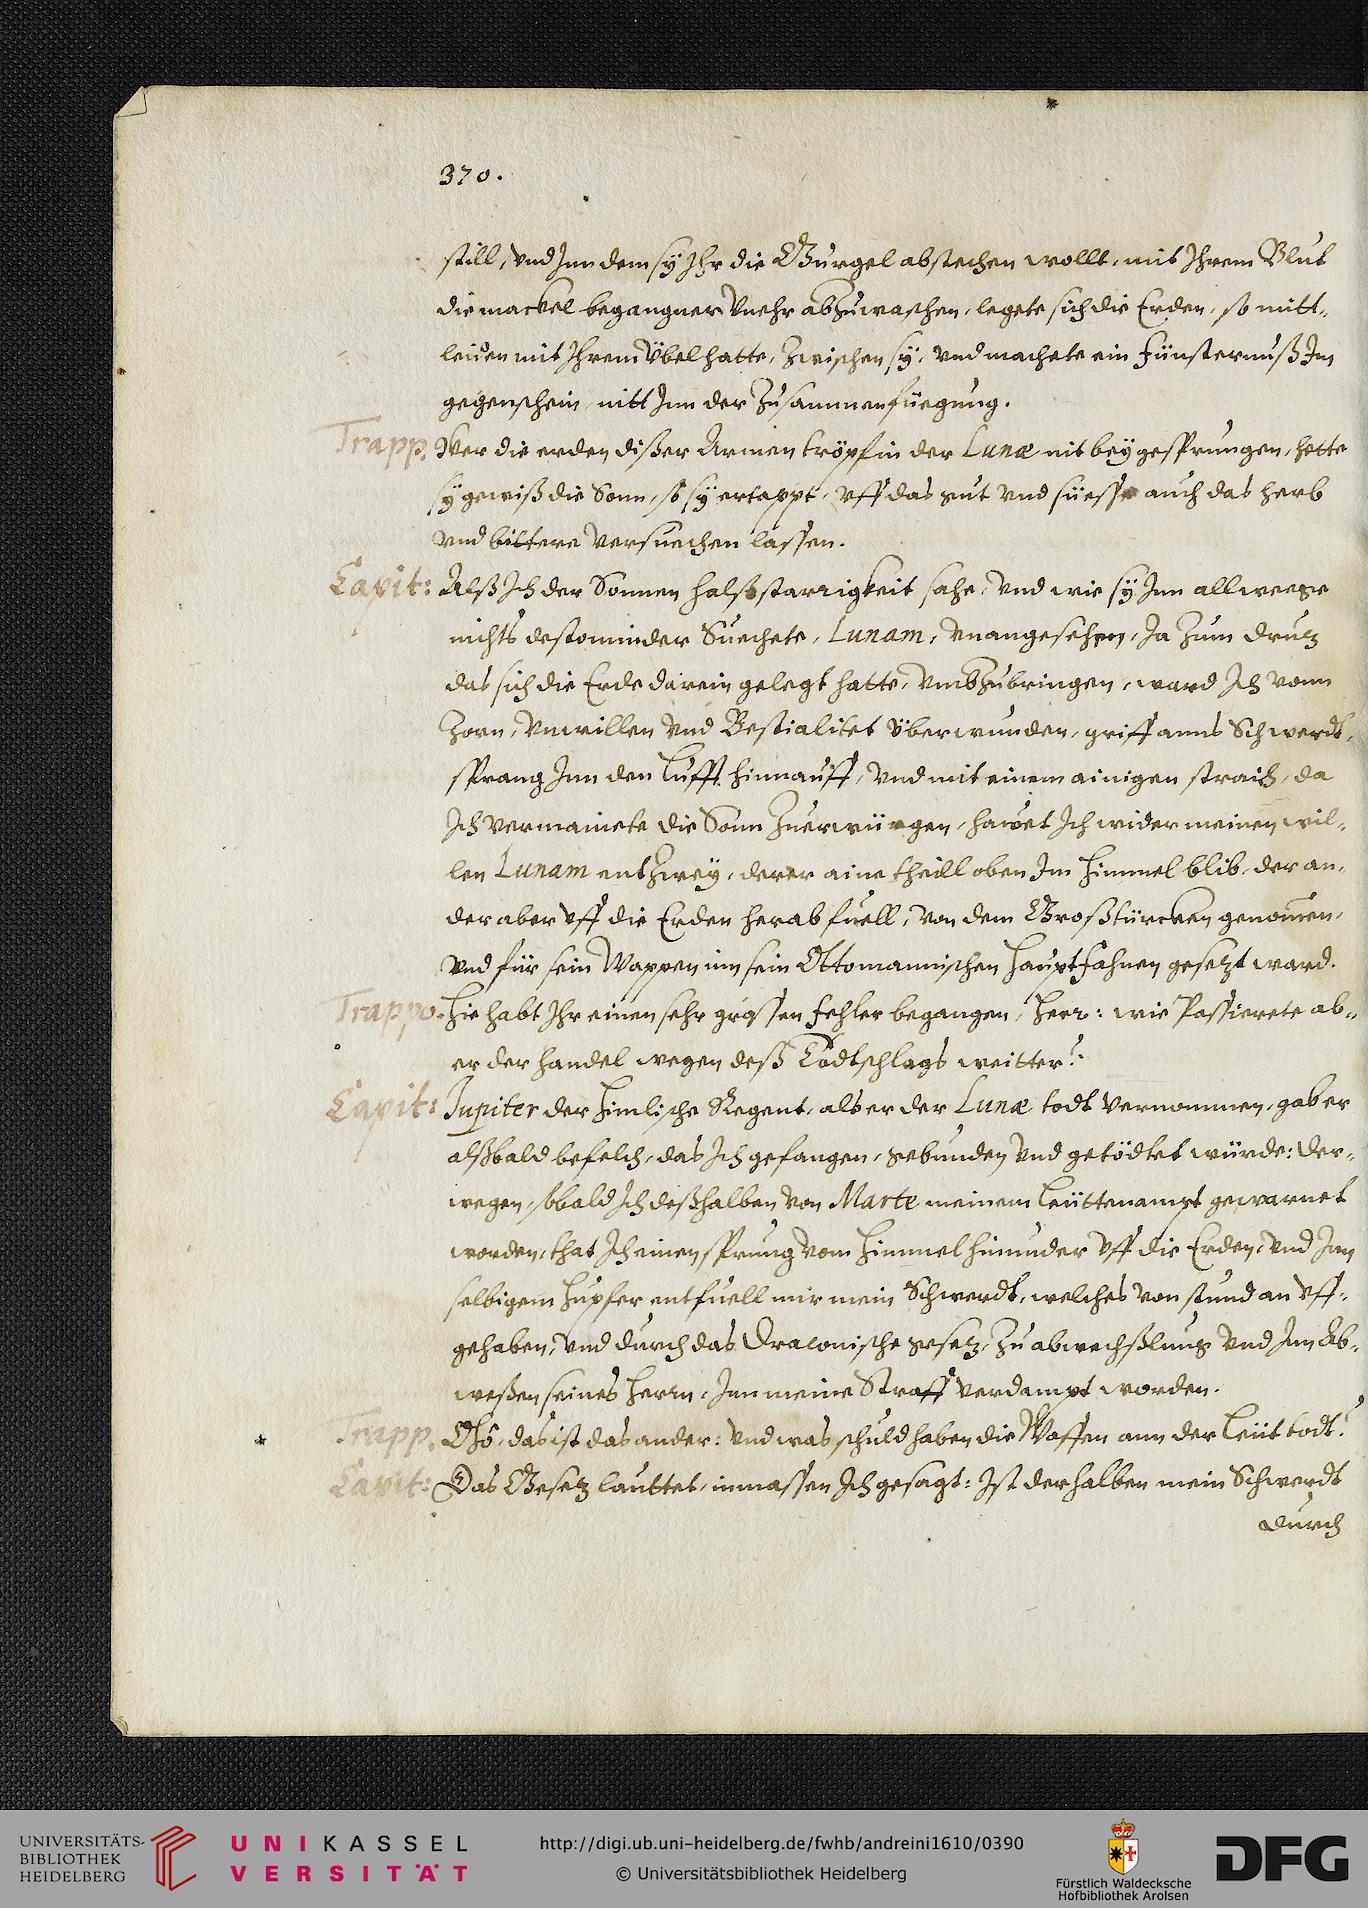 370.
still, vnd Inn dem sy Ihr die Gurgel abstechen wollt, mit Ihrem Blut
die mackel begangner Vnehr abzuwaschen, legete sich die Erden, so mitt-
leiden mit Ihrem übel hatte, zwischen sy, vnd machete ein fünsternuß Im
gegenschein, nitt Inn der Zusammenfüegung.
Trapp. Wer die erden dißer Armen tröpfin der Lunæ nit beygesprungen, hette
sy gewiß die Sonn, so sy ertappt, vff das gut vnd süesse auch das herb
vnd bittere versuechen lassen.
Capit: Alß Ich der Sonnen halßstarrigkeit sahe, vnd wie sy Inn allweege
nichts destominder Suechete, Lunam, vnangesehen, Ja zum drutz
das sich die Erde darein gelegt hatte, vmbzubringen, ward Ich vonn
Zorn, vnwillen vnd Bestialitet überwunden, griff anns Schwerdt,
sprang Inn den Lufft hinnauff, vnd mit einem ainigen straich, da
Ich vermainete die Sonn zuerwürgen, hawet Ich wider meinen wil-
len Lunam entzwey, derer aine theill oben Im himmel blib, der an-
der aber vff die Erden herab fuell, von dem Großtürcken genomen,
vnd für sein Wappen inn sein Ottomannischen hauptfahnen gesetzt ward.
Trappo. Hie habt Ihr einen sehr grossen fehler begangen, Herr: wie Passierete ab-
er der handel wegen deß Todtschlags weitter?
Capit: Iupiter der himlische Regent, als er der Lunæ todt vernommen, gab er
alßbald befelch, das Ich gefangen, gebunden vnd getödtet würde: der-
wegen, sobald Ich deßhalben von Marte meinem Leüttenampt gewarnet
worden, that Ich einen sprung vom himmel hinunder vff die Erden, vnd Inn
selbigem hupfer entfuell mir mein Schwerdt, welches von stund an vff-
gehaben, vnd durch das Draconische gesetz, zu abwechßlung vnd Inn Ab-
weßen seines herrn, Inn meine Straff verdampt worden.
Trapp. Ohô, das ist das ander: vnd was schuld haben die Waffen ann der Leüt todt?
Capit: Das Gesetz lauttet, inmassen Ich gesagt: Ist derhalben mein Schwerdt
durch
UNIVERSITÄTS-
BIBLIOTHEK
HEIDELBERG
UNIKASSEL
VERSITÄT
http://digi.ub.uni-heidelberg.de/fwhb/andreini1610/0390
© Universitätsbibliothek Heidelberg
Fürstlich Waldecksche
Hofbibliothek Arolsen
DFG